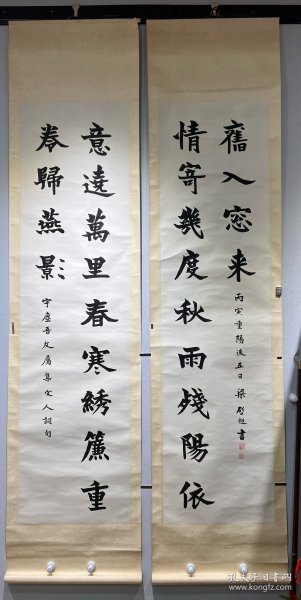 情寄幾度秋雨殘陽依
舊入窓来
丙寅重陽後五日 梁啓超書
意遠萬里春寒綉簾重
卷歸燕影
宇塵吾友屬集宋人詞句
孔夫子旧书网
www.kongfz.com